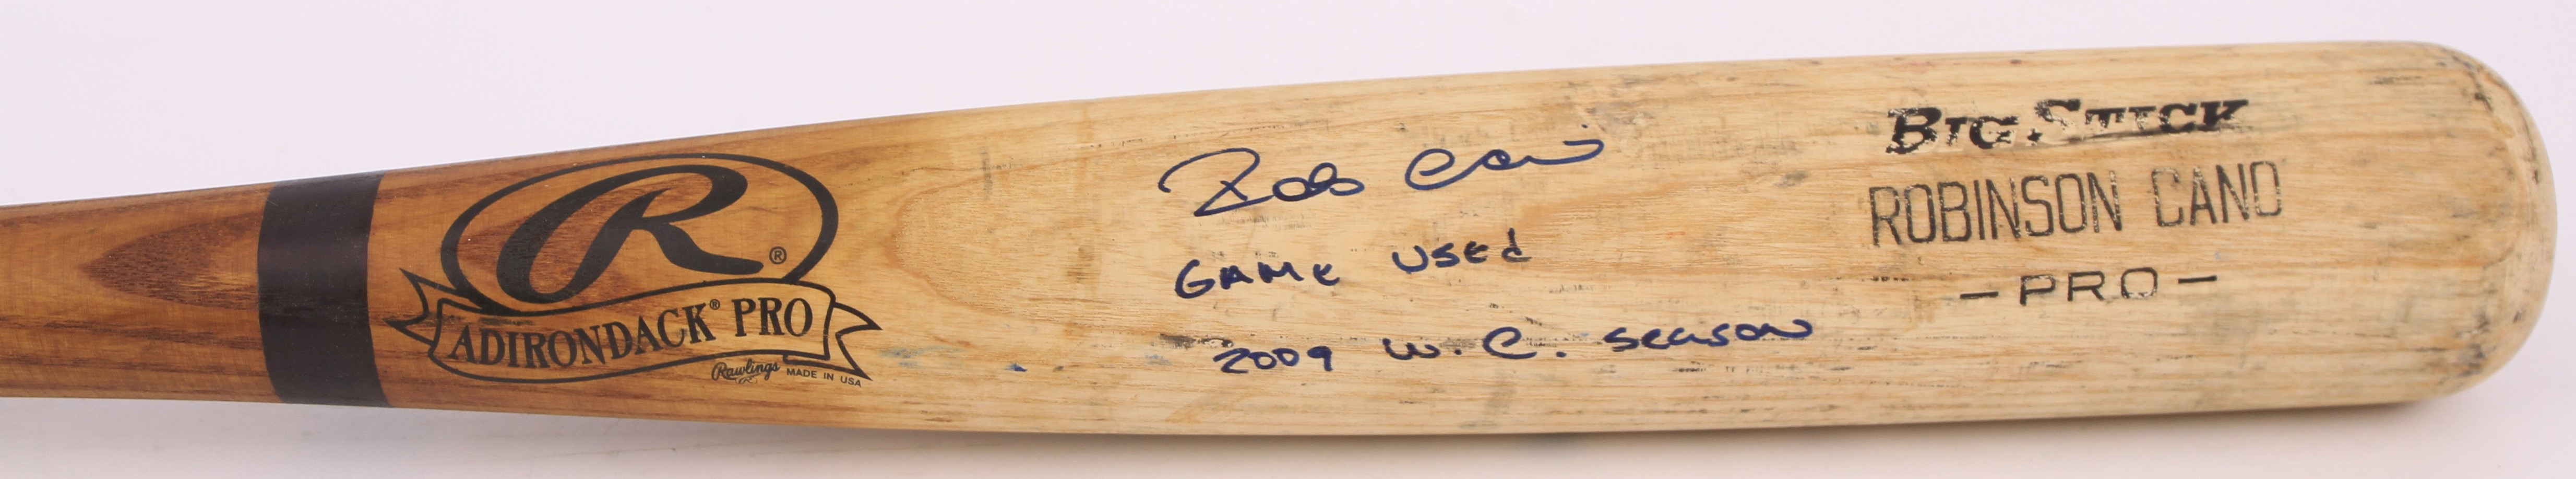 R®
ADIRONDACK® PRO
Rawlings MADE IN USA
Rob Cano
GAME USED
2009 W.C. Season
BIG STICK
ROBINSON CANO
- PRO -